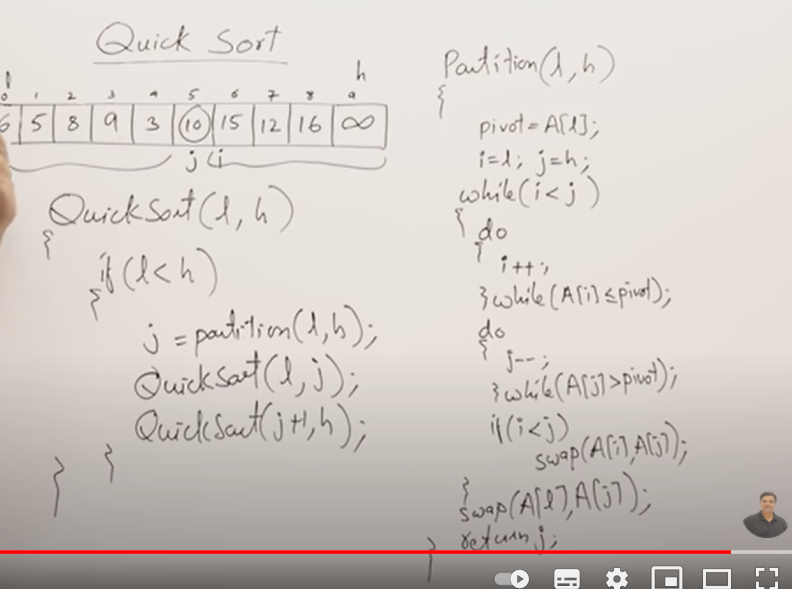 Quick Sort
l h
0 1 2 3 4 5 6 7 8 9
6 5 8 9 3 10 15 12 16 ∞
j i
QuickSort(l, h)
{
if(l<h)
{
j = partition(l, h);
QuickSort(l, j);
QuickSort(j+1, h);
}
}
Partition(l, h)
{
pivot = A[l];
i=l; j=h;
while(i<j)
{ do
{
i++;
}while(A[i]≤pivot);
do
{ j--;
}while(A[j]>pivot);
if(i<j)
swap(A[i],A[j]);
}
swap(A[l],A[j]);
return j;
}